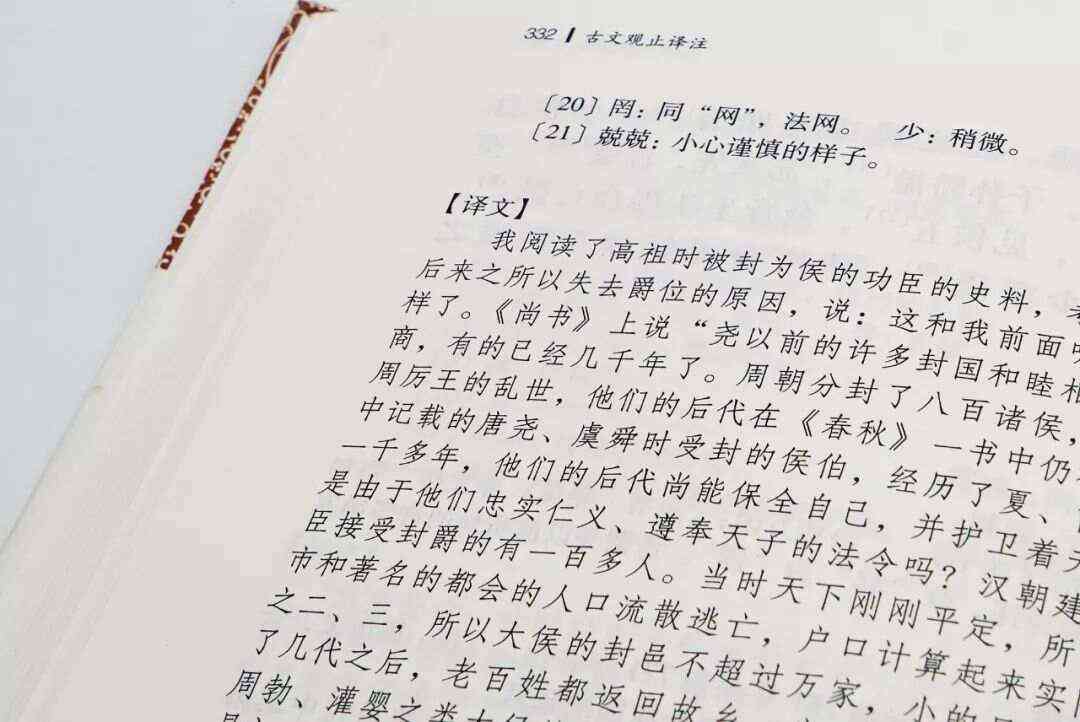 332 古文观止译注
〔20〕罔：同“网”，法网。 少：稍微。
〔21〕兢兢：小心谨慎的样子。
【译文】
我阅读了高祖时被封为侯的功臣的史料，
后来之所以失去爵位的原因，说：这和我前面
样了。《尚书》上说“尧以前的许多封国和睦相
商，有的已经几千年了。周朝分封了八百诸侯，
周厉王的乱世，他们的后代在《春秋》一书中仍
中记载的唐尧、虞舜时受封的侯伯，经历了夏、
一千多年，他们的后代尚能保全自己，并护卫着天
是由于他们忠实仁义、遵奉天子的法令吗？汉朝建
臣接受封爵的有一百多人。当时天下刚刚平定，所
市和著名的都会的人口流散逃亡，户口计算起来实
之二、三，所以大侯的封邑不超过万家，小的
了几代之后，老百姓都返回故乡
周勃、灌婴之类